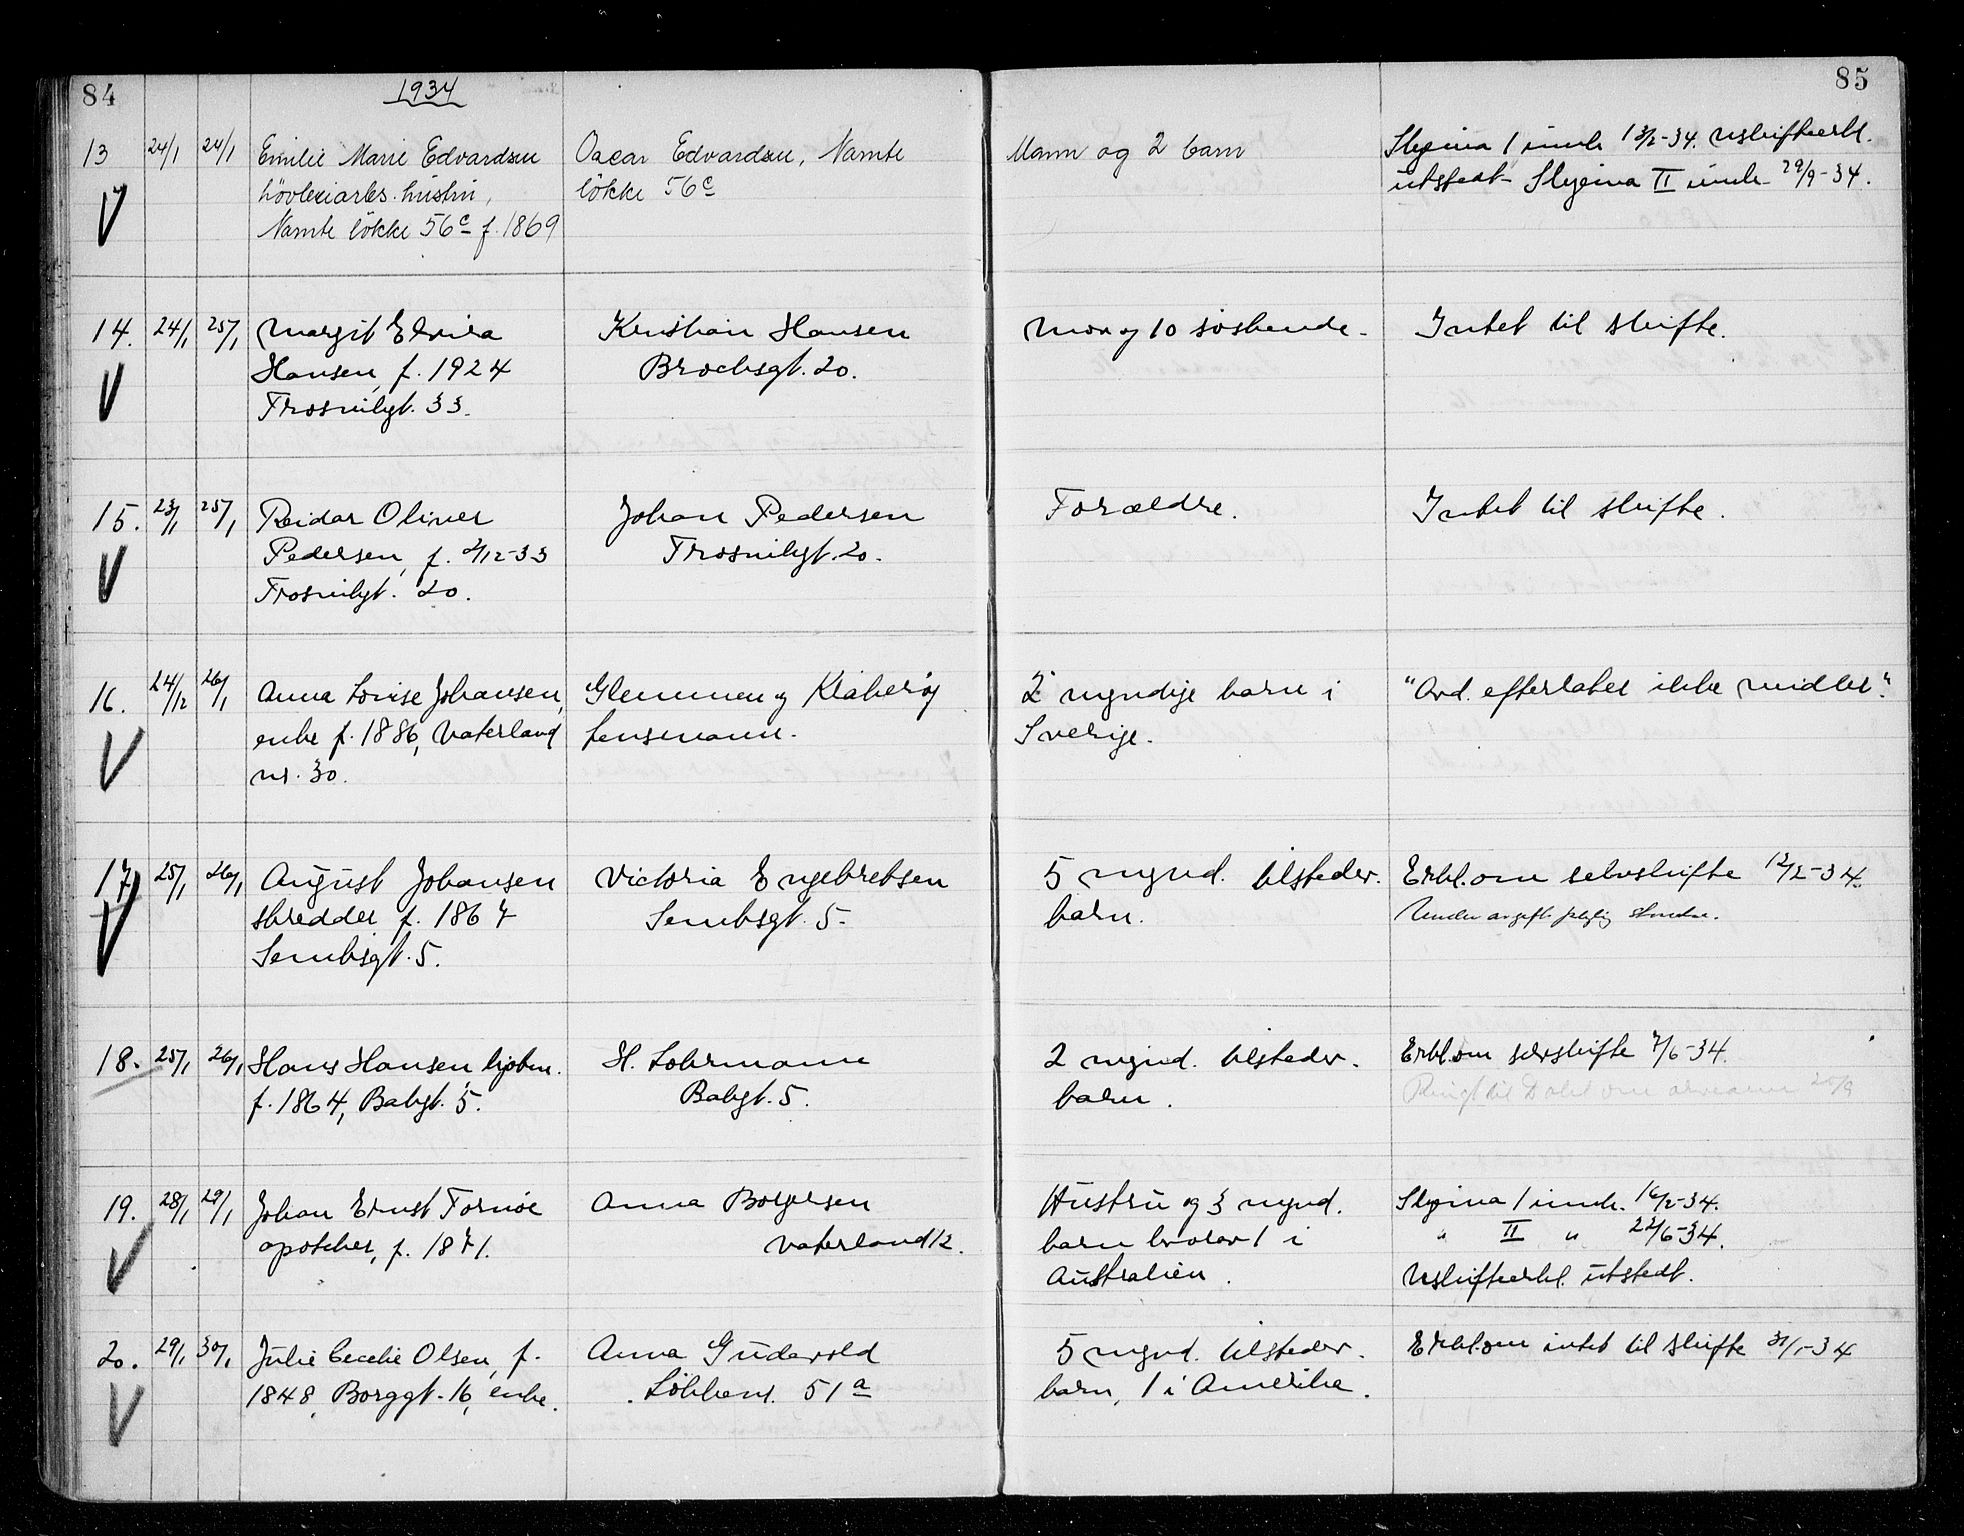 84
1934
85
13 24/1 24/1 Emilie Marie Edvardsen
hövleriarb. hustru,
Namte løkke 56c f. 1869
Oscar Edvardsen, Namte
løkke 56c
Mann og 2 barn
Skjema I innk. 13/2-34. Uskifteerkl.
utstedt Skjema II innk. 29/9-34.
14. 24/1 25/1 Margit Elvira
Hansen, f. 1924
Trosvikgt. 33.
Kristian Hansen
Brochsgt. 20.
Mor og 10 søskende.
Intet til skifte.
15. 23/1 25/1 Reidar Oliver
Pedersen, f. 2/12-33
Trosvikgt. 20.
Johan Pedersen
Trosvikgt. 20.
Forældre.
Intet til skifte.
16. 24/12 26/1 Anna Lovise Johansen,
enke f. 1886, Vaterland
nr. 30.
Glemmen og Kråkerøy
lensmann.
2 myndige barn i
Sverige.
"Avd. efterlater ikke midler".
17. 25/1 26/1 August Johansen
skredder, f. 1867
Lembsgt. 5.
Victoria Engebretsen
Lembsgt. 5.
5 mynd. tilsteder.
barn.
Erkl. om selvskifte 12/2-34.
Under avgiftspligtig størrelse.
18. 25/1 26/1 Hans Hansen, kjøbm.
f. 1864, Bakgt. 5.
H. Lohrmann
Bakgt. 5.
2 mynd. tilsteder.
barn.
Erkl. om selvskifte 7/6-34.
Ringt til Dahl om 20/9
19. 28/1 29/1 Johan Ernst Tornöe
apoteker, f. 1871.
Anna Borgersen
Vaterland 12.
Hustru og 3 mynd.
barn hvorav 1 i
Australien.
Skjema I innk. 16/2-34.
" II " 22/6-34.
Uskifteerkl. utstedt.
20. 29/1 30/1 Julie Cecelie Olsen, f.
1848, Borggt. 16, enke.
Anna Guderold
Løkken 51a
5 mynd. tilsteder.
barn, 1 i Amerika.
Erkl. om intet til skifte 31/1-34